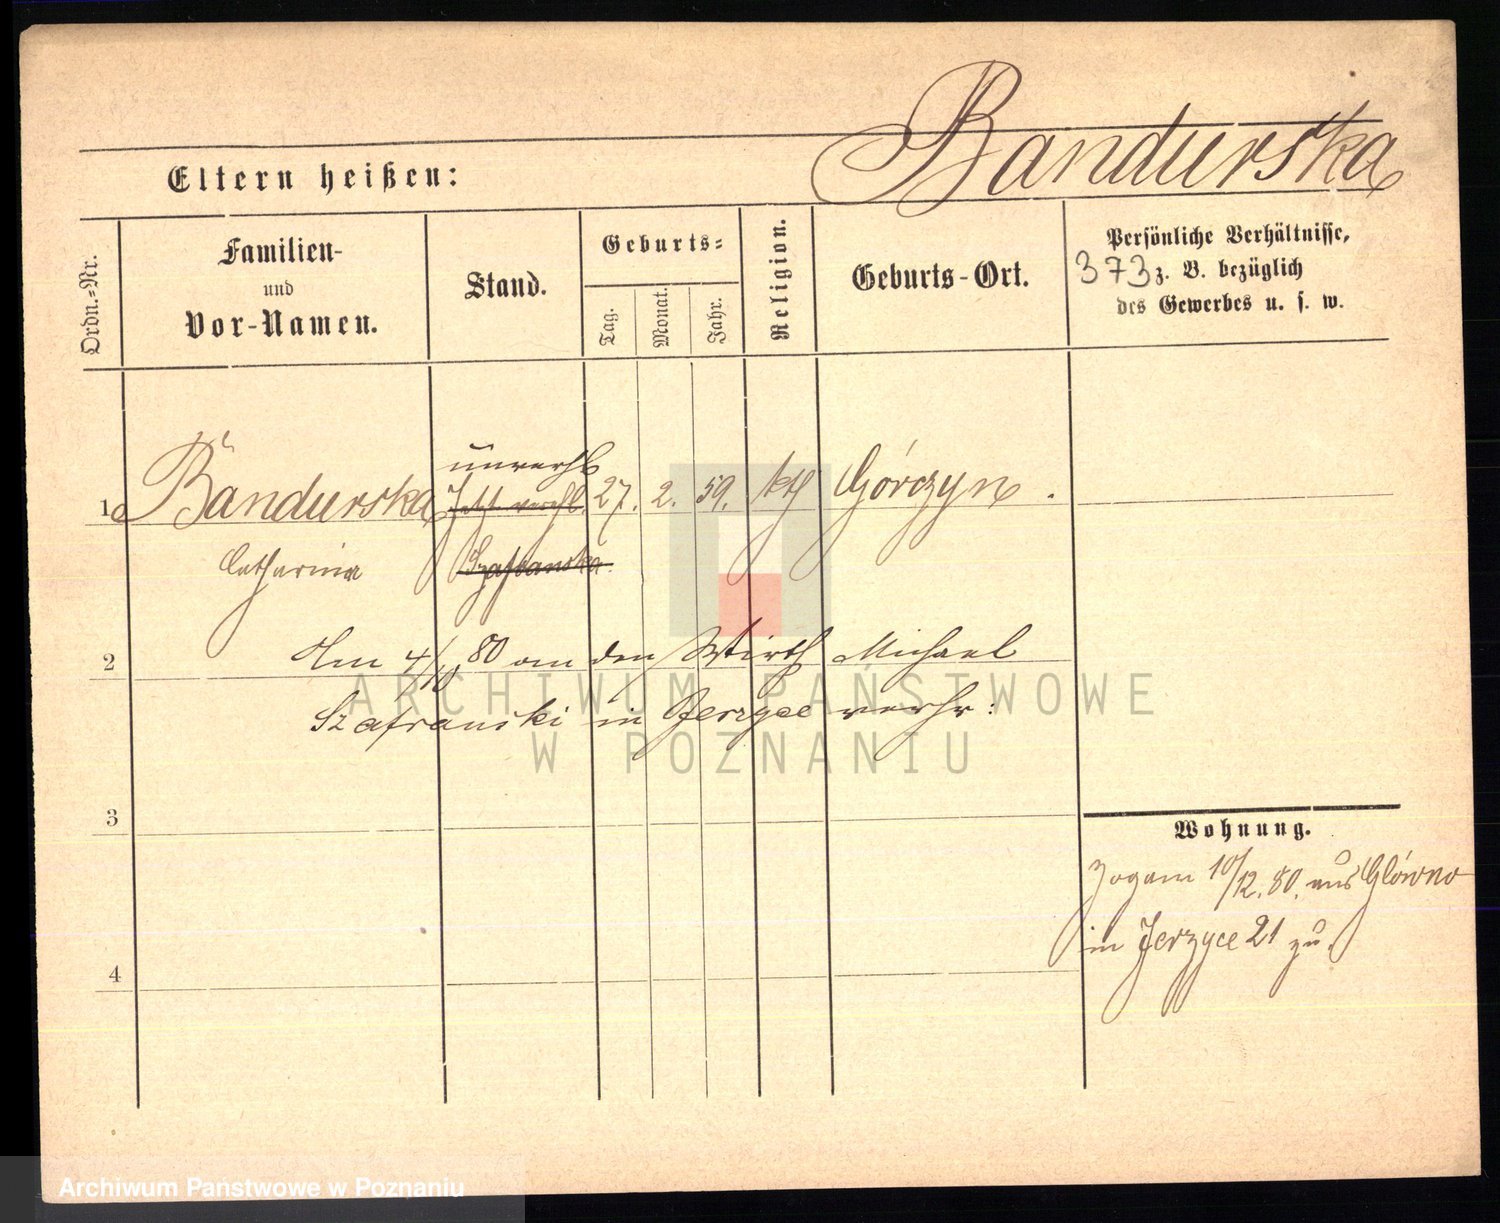 Bandurska
Eltern heißen:
Ordn.=Nr.
Familien-
und
Vor-Namen.
Stand.
Geburts=
Tag.
Monat.
Jahr.
Religion.
Geburts-Ort.
Persönliche Verhältnisse,
373 z. B. bezüglich
des Gewerbes u. s. w.
unverhl
1 Bandurska Jetzt verehl. 27. 2. 59. kth Górczyn.
Catharina Szafranska.
2 Am 4/10 80 an den Wirth Michael
Szafranski in Jerzyce verhr:
3
Wohnung.
Zog am 10/12. 80. aus Glówno
in Jerzyce 21 zu.
4
ARCHIWUM PAŃSTWOWE
W POZNANIU
Archiwum Państwowe w Poznaniu